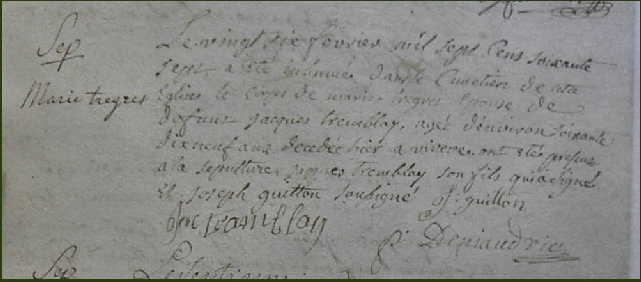 Sep
Marie tregres
Le vingt six fevrier mil sept cens soixante
sept a été inhumée dans le Cimetiere de cette
Eglise le corps de marie tregres Epouse de
défunt jacques tremblay, agée d'environ soixante
dixneuf ans decedée hier a vivere. ont eté presens
a la sepulture jaques tremblay son fils qui a signé
et joseph guitton soussigné J. guitton
jac tramblay
Sep